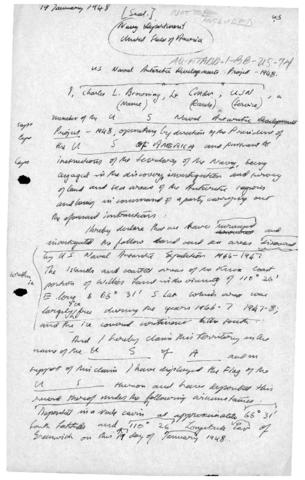 19 January 1948
[Seal.]
NOT TO BE
45
Navy Department
United States of America
U.S. Naval Antarctic Developments Project - 1948.
I, Charles L. Browning, Lt Comdr, USN, a
(Name) (Rank) (Service)
member of the U S Naval Antarctic Developments
Caps
Project - 1948, operating by direction of the President of
Caps
the U S OF AMERICA and pursuant to
instructions of the Secretary of the Navy, being
engaged in the discovery, investigation and survey
of land and sea areas of the Antarctic regions
and being in command of a party carrying out
the aforesaid instructions:
I hereby declare that we have surveyed
and investigated the follow land and sea areas discovered
by U S Naval Antarctic Expedition 1946-1947
The Islands and coastal areas of the Knox Coast
portion of Wilkes Land in the vicinity of 110° 26'
E long & 66° 31' S Lat which area was
largely free during the years 1946-7 / 1947-8;
and the ice covered continent
And I hereby claim this territory in the
name of the U S of A and in
support of this claim I have displayed the Flag of the
U S thereon and have deposited this
record thereof under the following circumstances
Deposited in a rock cairn at approximately 66° 31'
South latitude and 110° 26' Longitude East of
Greenwich on this 19 day of January 1948